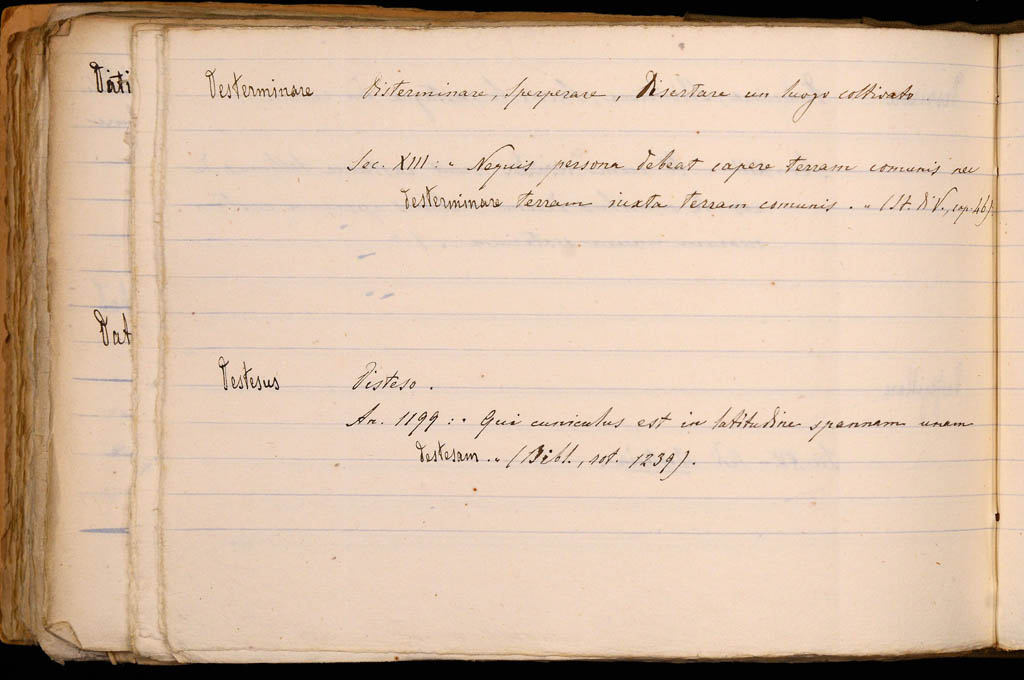 Dati
Desterminare Disterminare, sperperare, Disertare un luogo coltivato.
Sec. XIII: „ Nequis persona debeat capere terram comunis nec
desterminare terram iuxta terram comunis. „ (St. di V., cap. 46).
Dat
Destesus Disteso.
An. 1199: „ Qui cuniculus est in latitudine spannam unam
destesam. „ (Bibl., rot. 1239).